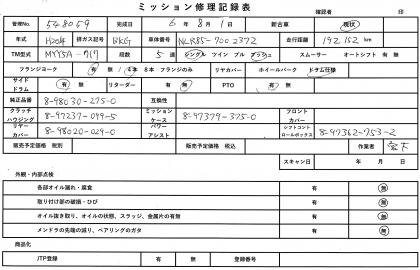 ミッション修理記録表
確認者 印
管理No. 548059 完成日 6年 8月 1日 新古車 現状
年式 H20/4 排ガス記号 BKG 車体番号 NLR85-7002372 走行距離 192152 km
TM型式 MYY5A 段数 5速 シングル ツイン プル プッシュ スムーサー オートシフト 有 無
フランジヨーク 有 無 4本 8本 フランジのみ リヤカバー ホイールパーク ドラム仕様
サイドドラム 有 無 リターダー 有 無 PTO 有 無
純正品番 8-98030-275-0 互換性
クラッチハウジング 8-97237-099-5 ミッションケース 8-97379-375-0 フロントカバー
リヤーカバー 8-98020-029-0 パワーアシスト シフトコントロールボックス 8-97362-753-2
販売予定価格 税別 販売予定価格 税込 作業者 宮下
スキャン日 年 月 日
外観・内部点検
各部オイル漏れ・腐食 有 無
取り付け部の破損・ひび 有 無
オイル抜き取り、オイルの状態、スラッジ、金属片の有無 有 無
メンドラの先端の減り、ベアリングのガタ 有 無
商品化
JTP登録 有 無 登録番号